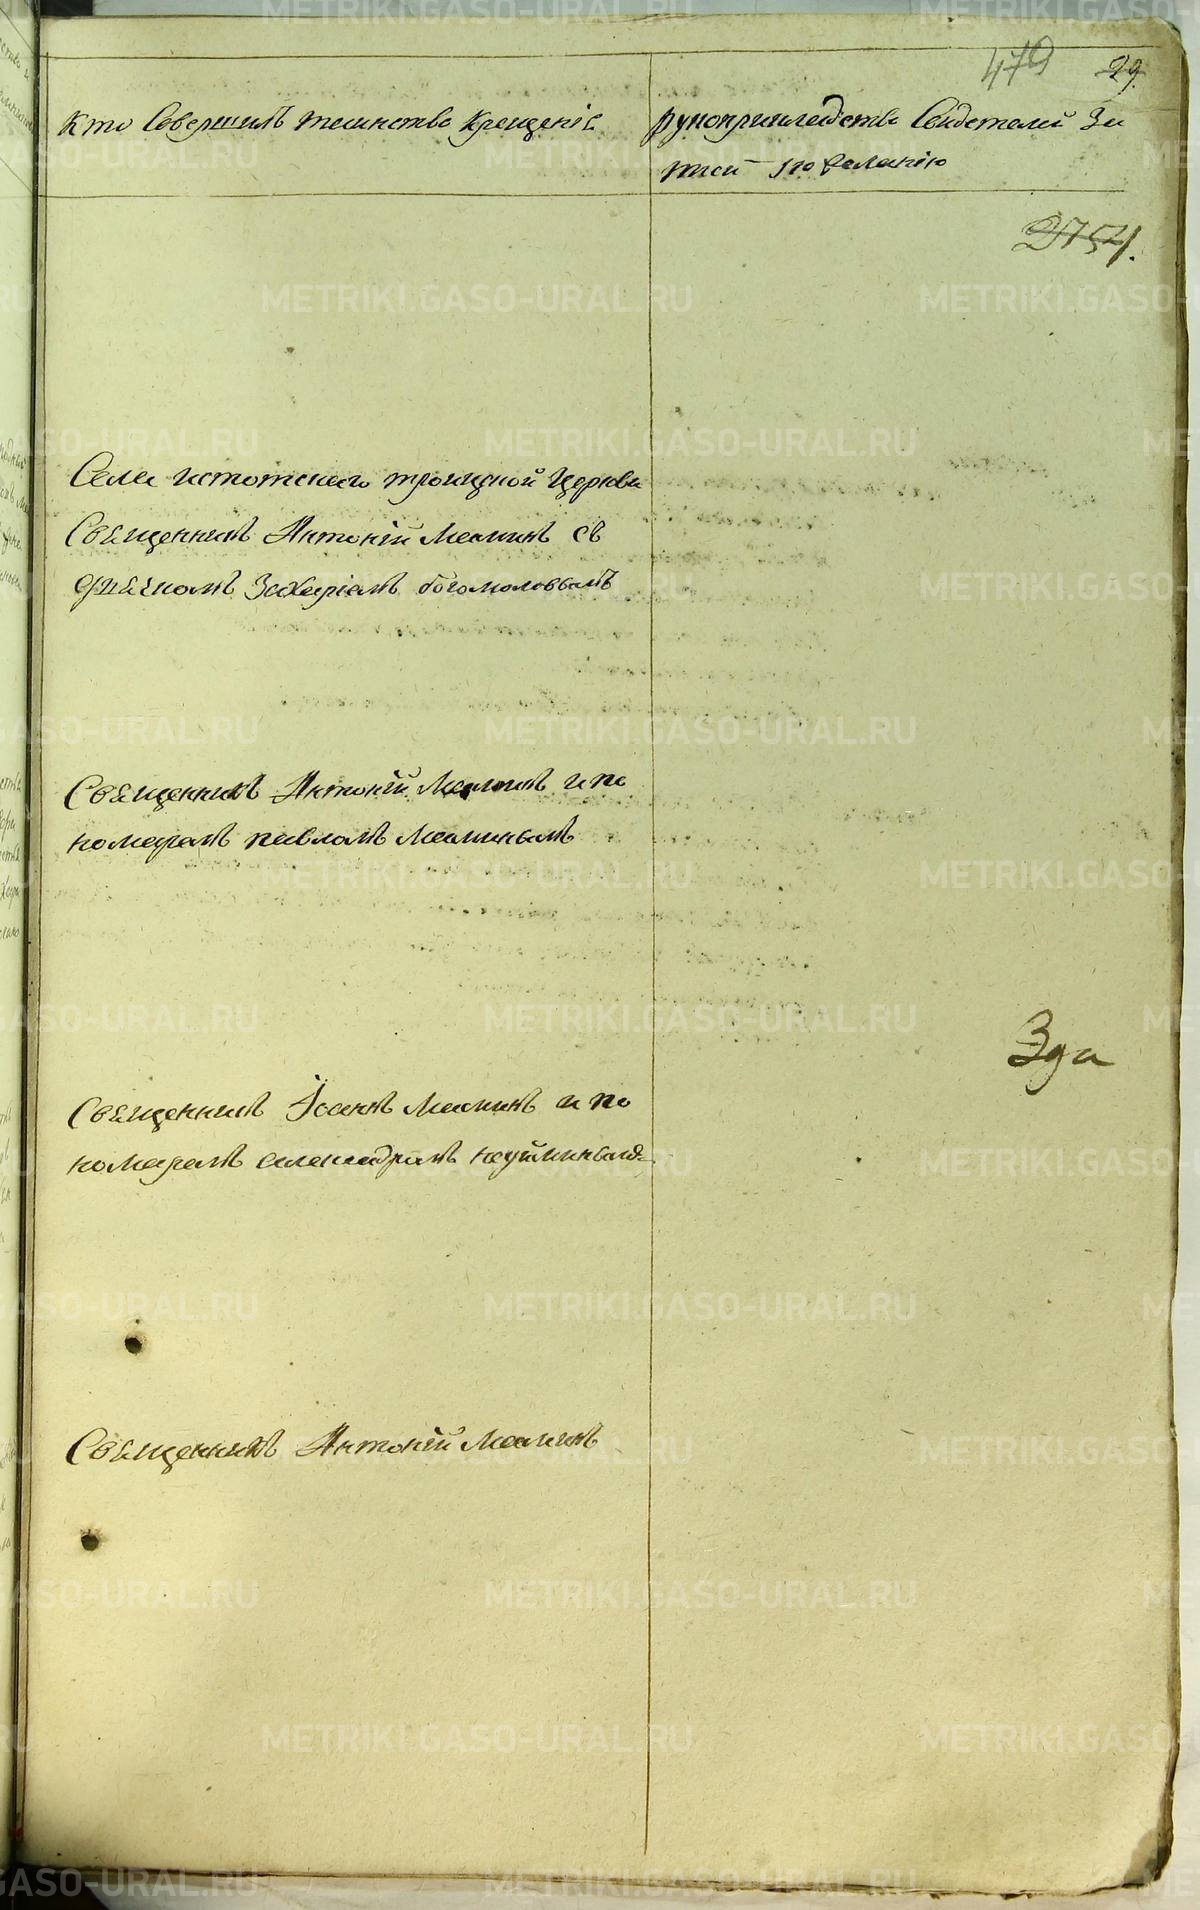 479 29.
Кто Совершилъ таинство крещенія
рукоприкладство Свидетелей За
писи по желанію
2754.
Села истокскаго троицкой Церкви
Священникъ Антоній Маминъ съ
дьячкомъ Захаріемъ богомоловымъ
Священникъ Антоній Маминъ и по
номаремъ павломъ Маминымъ
Зда
Священникъ Іоаннъ Маминъ и по
номаремъ александромъ неуйминымъ
Священникъ Антоній Маминъ
METRIKI.GASO-URAL.RU